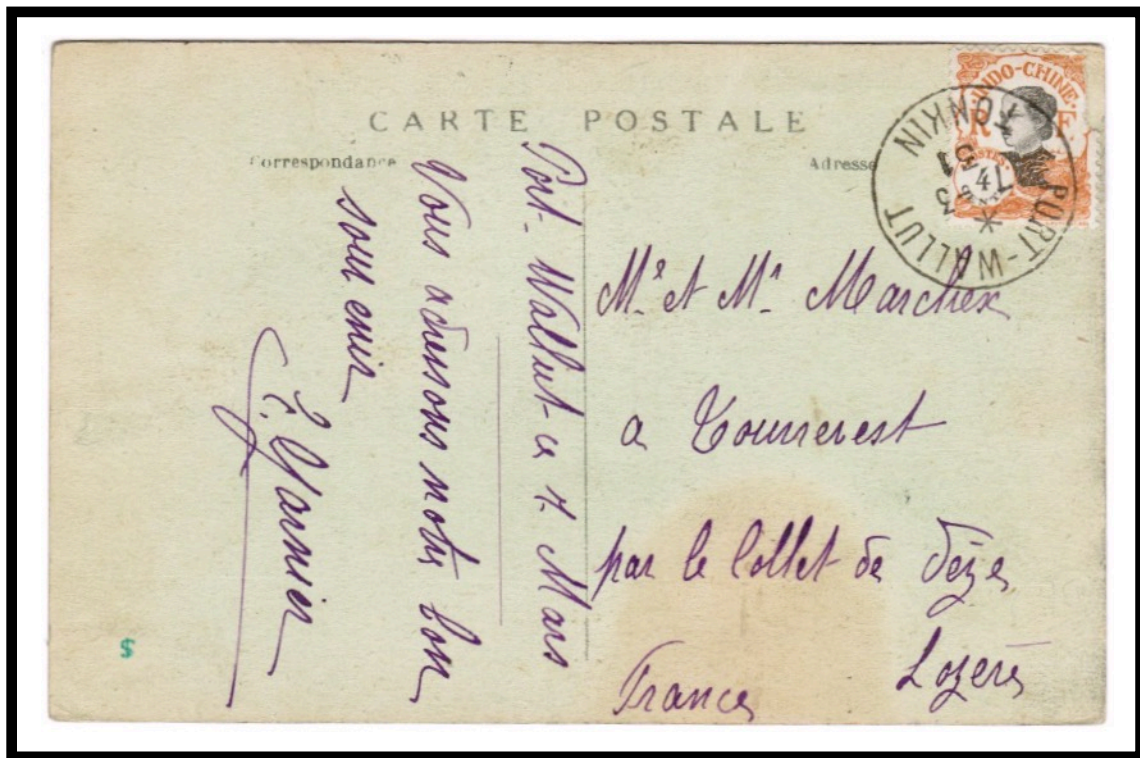 CARTE POSTALE
Correspondance
Adresse
INDO-CHINE
R F
POSTES
PORT-WALLUT
TONKIN
Port-Wallut ce 7 Mars
Vous adressons notre bon
souvenir
E. Garnier
Mr et Me
a
par le Collet de Dèze
Lozère
France
$